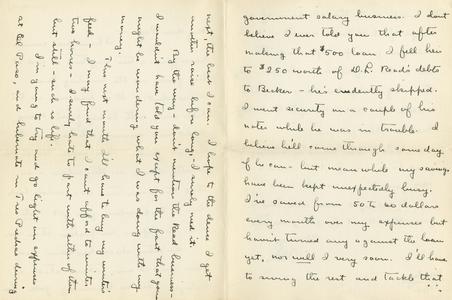 government salary business. I dont
believe I ever told you that after
making that $500 loan I fell heir
to $250 worth of D.L. Read's debts
to Becker – he's evidently skipped.
I went security on a couple of his
notes while he was in trouble. I
believe he'll come through some day
if he can – but mean while my savings
have been kept unexpectedly busy.
I've saved from 50 to 60 dollars
every month over my expenses but
havnt turned any against the loan
yet, nor will I very soon. I'll have
to swing the rest and tackle that
next the best I can. I hope to the deuce I get
another raise before long. I surely need it.
By the way – don't mention the Read business –
I wouldn't have told you except for the fact that you
might be wondering what I was doing with my
money.
This next month I'll have to buy my winter's
feed – I may find that I can't afford to winter
two horses – I surely hate to part with either of them
but still – such is life.
I'm going to try and go light on expenses
at El Paso, and hibernate in Tres Piedras during